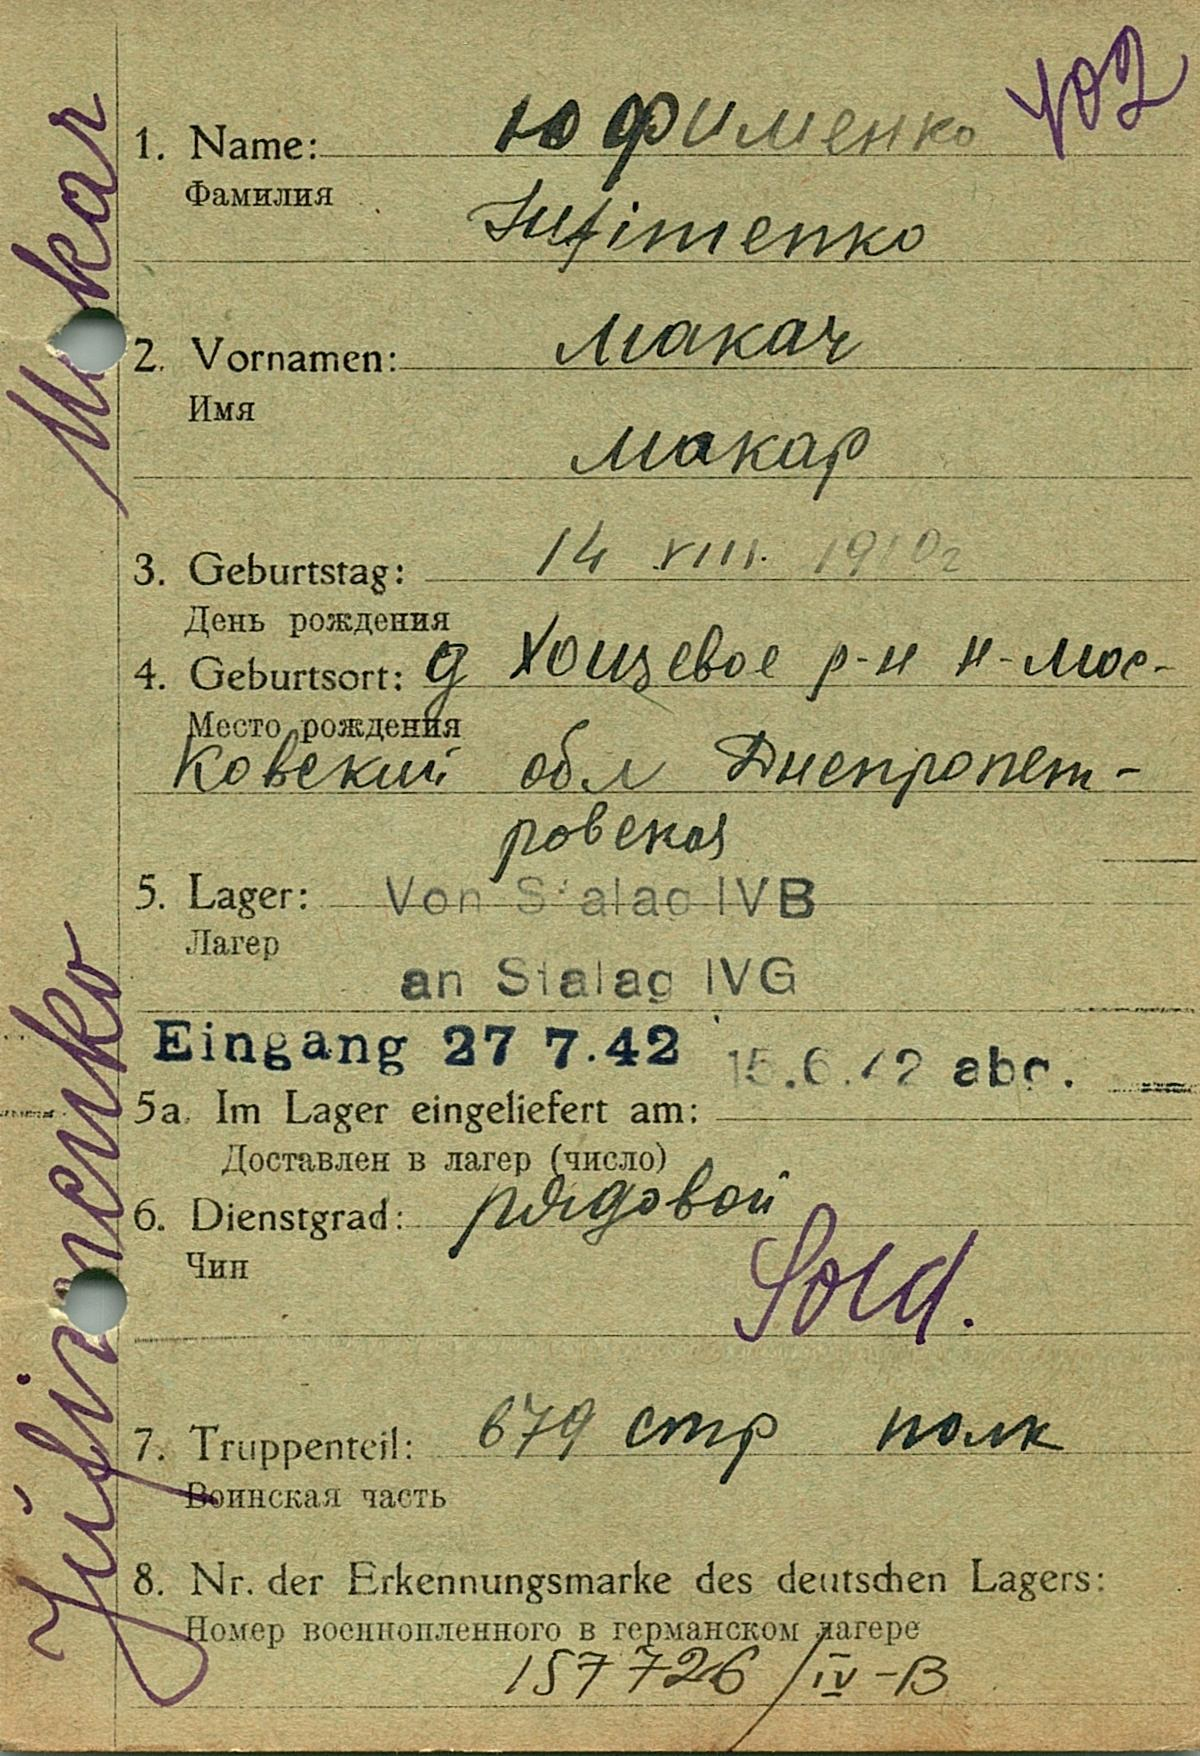 402
1. Name: Юфименко
Фамилия
Jufimenko
2. Vornamen: Макаr
Имя
Макар
3. Geburtstag: 14 VIII. 1910г
День рождения
4. Geburtsort: д Хощевое р-н Н-Мос-
Место рождения
ковский обл Днепропет-
ровская
5. Lager: Von Stalag IVB
Лагер
an Stalag IVG
Eingang 27 7.42 15.6.42 abg.
5a. Im Lager eingeliefert am:
Доставлен в лагер (число)
6. Dienstgrad: рядовой
Чин
Sold.
7. Truppenteil: 679 стр полк
Воинская часть
8. Nr. der Erkennungsmarke des deutschen Lagers:
Номер военнопленного в германском лагере
157726/IV-B
Jufimenko Makar